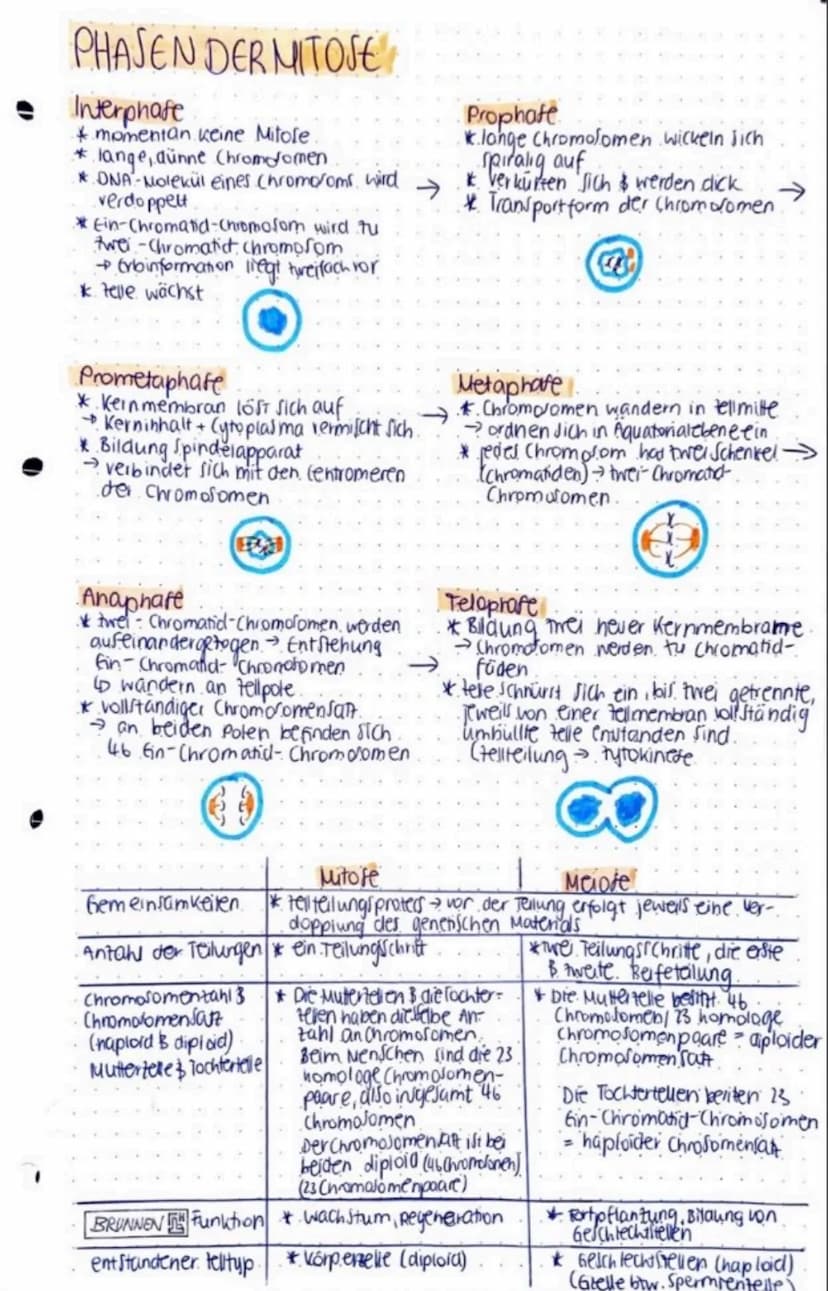 PHASEN DER MITOSE
Interphase
* momentan keine Mitose
* lange, dünne Chromosomen
* DNA-Molekül eines Chromosoms wird
verdoppelt
* Ein-Chromatid-Chromosom wird zu
zwei-Chromatid chromosom
→ Erbinformation liegt zweifach vor
* Zelle wächst
→
Prophase
* lange Chromosomen wickeln sich
spiralig auf
* verkürzen sich & werden dick
* Transportform der Chromosomen
→
Prometaphase
* Kernmembran löst sich auf
→ Kerninhalt + Cytoplasma vermischt sich
* Bildung Spindelapparat
→ verbindet sich mit den Centromeren
der Chromosomen
→
Metaphase
* Chromosomen wandern in Zellmitte
→ ordnen sich in Äquatorialebene ein
* jedes Chromosom hat zwei Schenkel
(Chromatiden) → zwei-Chromatid-
Chromosomen
→
Anaphase
* zwei-Chromatid-Chromosomen werden
auseinandergezogen → Entstehung
Ein-Chromatid-Chromosomen
↳ wandern an Zellpole
* vollständiger Chromosomensatz
→ an beiden Polen befinden sich
46 Ein-Chromatid-Chromosomen
→
Telophase
* Bildung zwei neuer Kernmembrane
→ Chromosomen werden zu Chromatid-
fäden
* Zelle schnürst sich ein, bis zwei getrennte,
jeweils von einer Zellmembran vollständig
umhüllte Zelle entstanden sind
(Zellteilung → Zytokinese
Mitose Meiose
Gemeinsamkeiten
* Zellteilungsprozess → vor der Teilung erfolgt jeweils eine Ver-
dopplung des genetischen Materials
Anzahl der Teilungen
* ein Teilungschritt
* zwei Teilungsschritte, die erste
& zweite Reifeteilung
Chromosomenzahl &
Chromosomensatz
(haploid & diploid)
Mutterzelle & Tochterzelle
* Die Mutterzellen & die Tochter-
zellen haben dieselbe An-
zahl an Chromosomen.
Beim Menschen sind die 23
homologe Chromosomen-
paare, also insgesamt 46
Chromosomen
Der Chromosomensatz ist bei
beiden diploid (46 Chromosonen)
(23 Chromosomenpaare)
* Die Mutterzelle besitzt 46
Chromosomen / 23 homologe
Chromosomenpaare = diploider
Chromosomensatz
Die Tochterzellen besitzen 23
Ein-Chromatid-Chromosomen
= haploider Chrosomensatz
BRUNNEN
Funktion
* Wachstum, Regeneration
* Fortpflanzung, Bildung von
Geschlechtszellen
entstandener Zelltyp
* Körperzelle (diploid)
* Geschlechtszellen (haploid)
(Eizelle bzw. Spermienzelle)